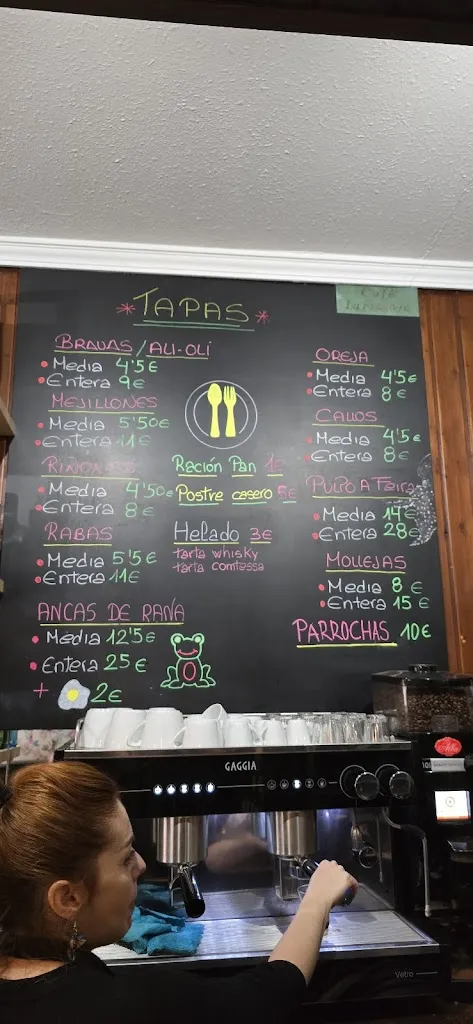 * TAPAS *
BRAVAS / ALI-OLI
• Media 4'5€
• Entera 9€
MEJILLONES
• Media 5'50€
• Entera 11€
RIÑONES
• Media 4'50€
• Entera 8€
RABAS
• Media 5'5€
• Entera 11€
ANCAS DE RANA
• Media 12'5€
• Entera 25€
+ 2€
Ración Pan 1€
Postre casero 5€
Helado 3€
tarta whisky
tarta comtessa
OREJA
• Media 4'5€
• Entera 8€
CALLOS
• Media 4'5€
• Entera 8€
PULPO A Feira
• Media 14€
• Entera 28€
MOLLEJAS
• Media 8€
• Entera 15€
PARROCHAS 10€
GAGGIA
Vetro